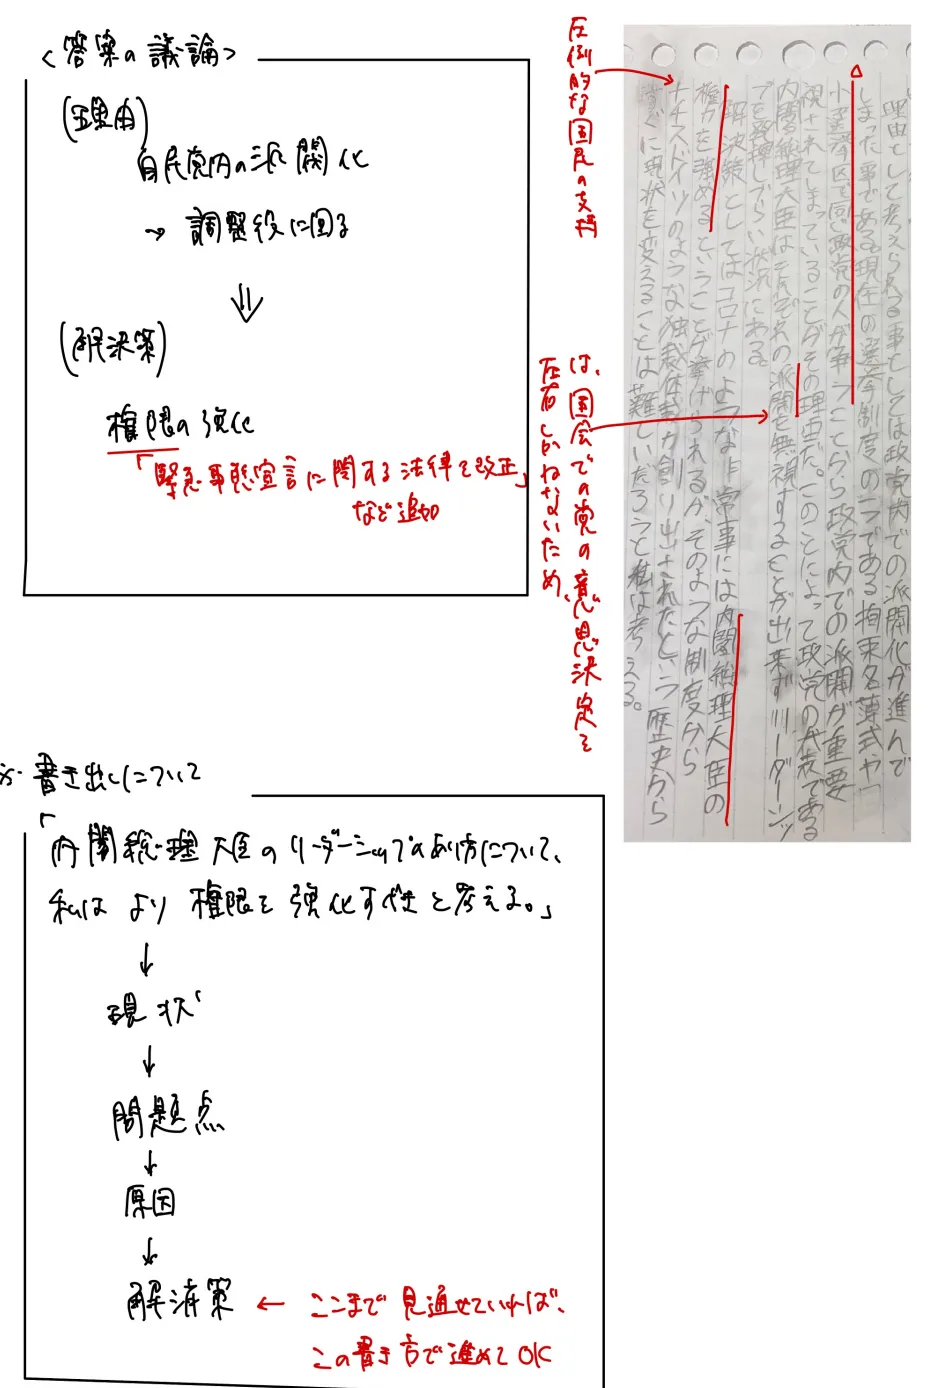 <答案の議論>
(理由)
自民党内の派閥化
→ 調整役に回る
⇓
(解決策)
権限の強化
「緊急事態宣言に関する法律を改正」
など追加
圧倒的な国民の支持
は、国会での党の意思決定を
左右しかねないため、
理由として考えられる事としては政党内での派閥化が進んで
しまった事である。現在の選挙制度の1つである拘束名簿式や
小選挙区で同じ政党の人が争うことから政党内での派閥が重要
視されてしまっていることがその理由だ。このことによって政党の代表である
内閣総理大臣はそれぞれの派閥を無視することが出来ずリーダーシッ
プを発揮しづらい状況にある。
解決策としてはコロナのような非常事には内閣総理大臣の
権力を強めるということが挙げられるが、そのような制度から
ナチスドイツのような独裁体裁が創り出されたという歴史から
すぐに現状を変えることは難しいだろうと私は考える。
※書き出しについて
「内閣総理大臣のリーダーシップのあり方について、
私はより権限を強化すべきと考える。」
↓
現状
↓
問題点
↓
原因
↓
解決策 ← ここまで見通せていれば、
この書き方で進めてOK